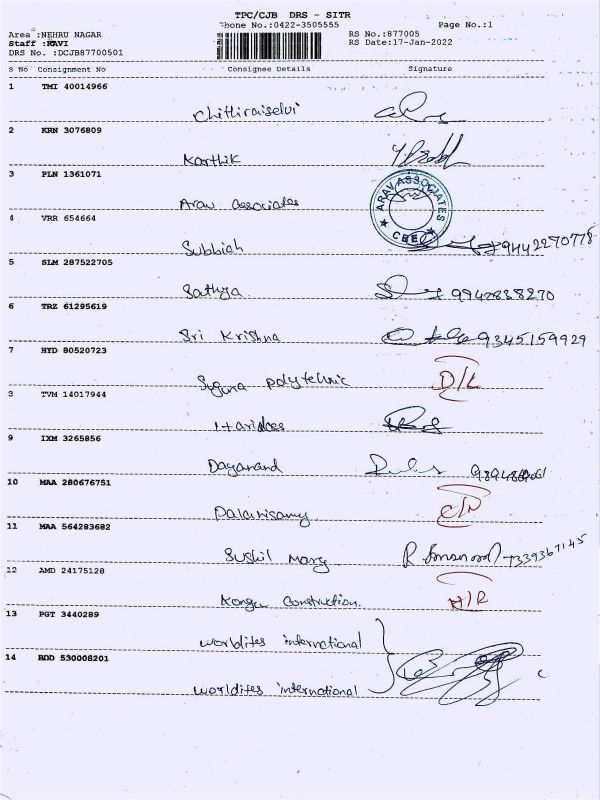 TPC/CJB DRS - SITR
Phone No.:0422-3505555
Page No.:1
Area :NEHRU NAGAR
Staff :RAVI
DRS No. :DCJB87700501
RS No.:877005
RS Date:17-Jan-2022
S No Consignment No Consignee Details Signature
1 TMI 40014966
Chithiraiselvi
2 KRN 3076809
Karthik
3 PLN 1361071
Arav Associates
ARAV ASSOCIATES
★ CBE ★
4 VRR 654664
Subbiah 9442270778
5 SLM 287522705
Sathya 9942838270
6 TRZ 61295619
Sri Krishna 9345159929
7 HYD 80520723
Suguna polytechnic D/L
8 TVM 14017944
Haridoss
9 IXM 3265856
Dayanand
10 MAA 280676751
Palanisamy
11 MAA 564283682
Sushil Mary 7339367145
12 AMD 24175128
Kongu Construction
13 PGT 3440289
worldites international
14 BDD 530008201
worldites international